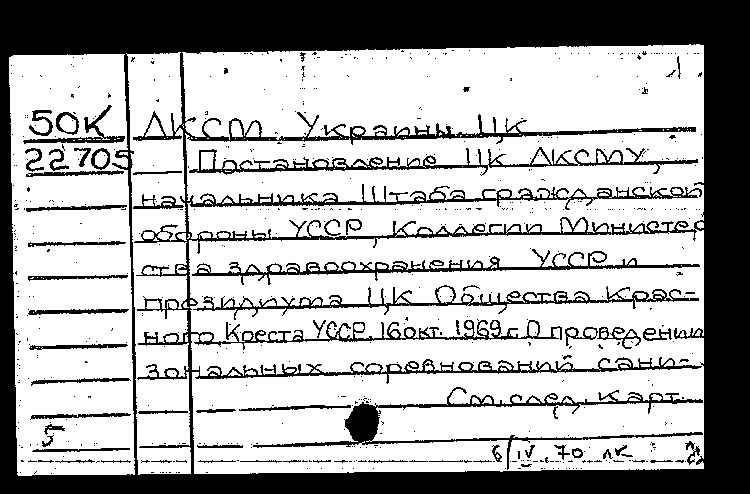 50К ЛКСМ Украины. ЦК
22705 Постановление ЦК ЛКСМУ,
начальника Штаба гражданской
обороны УССР, Коллегии Министер
ства здравоохранения УССР и
президиума ЦК Общества Крас-
ного Креста УССР. 16 окт. 1969 г. О проведении
зональных соревнований сани-
См. след. карт.
5
6/IV.70 лк